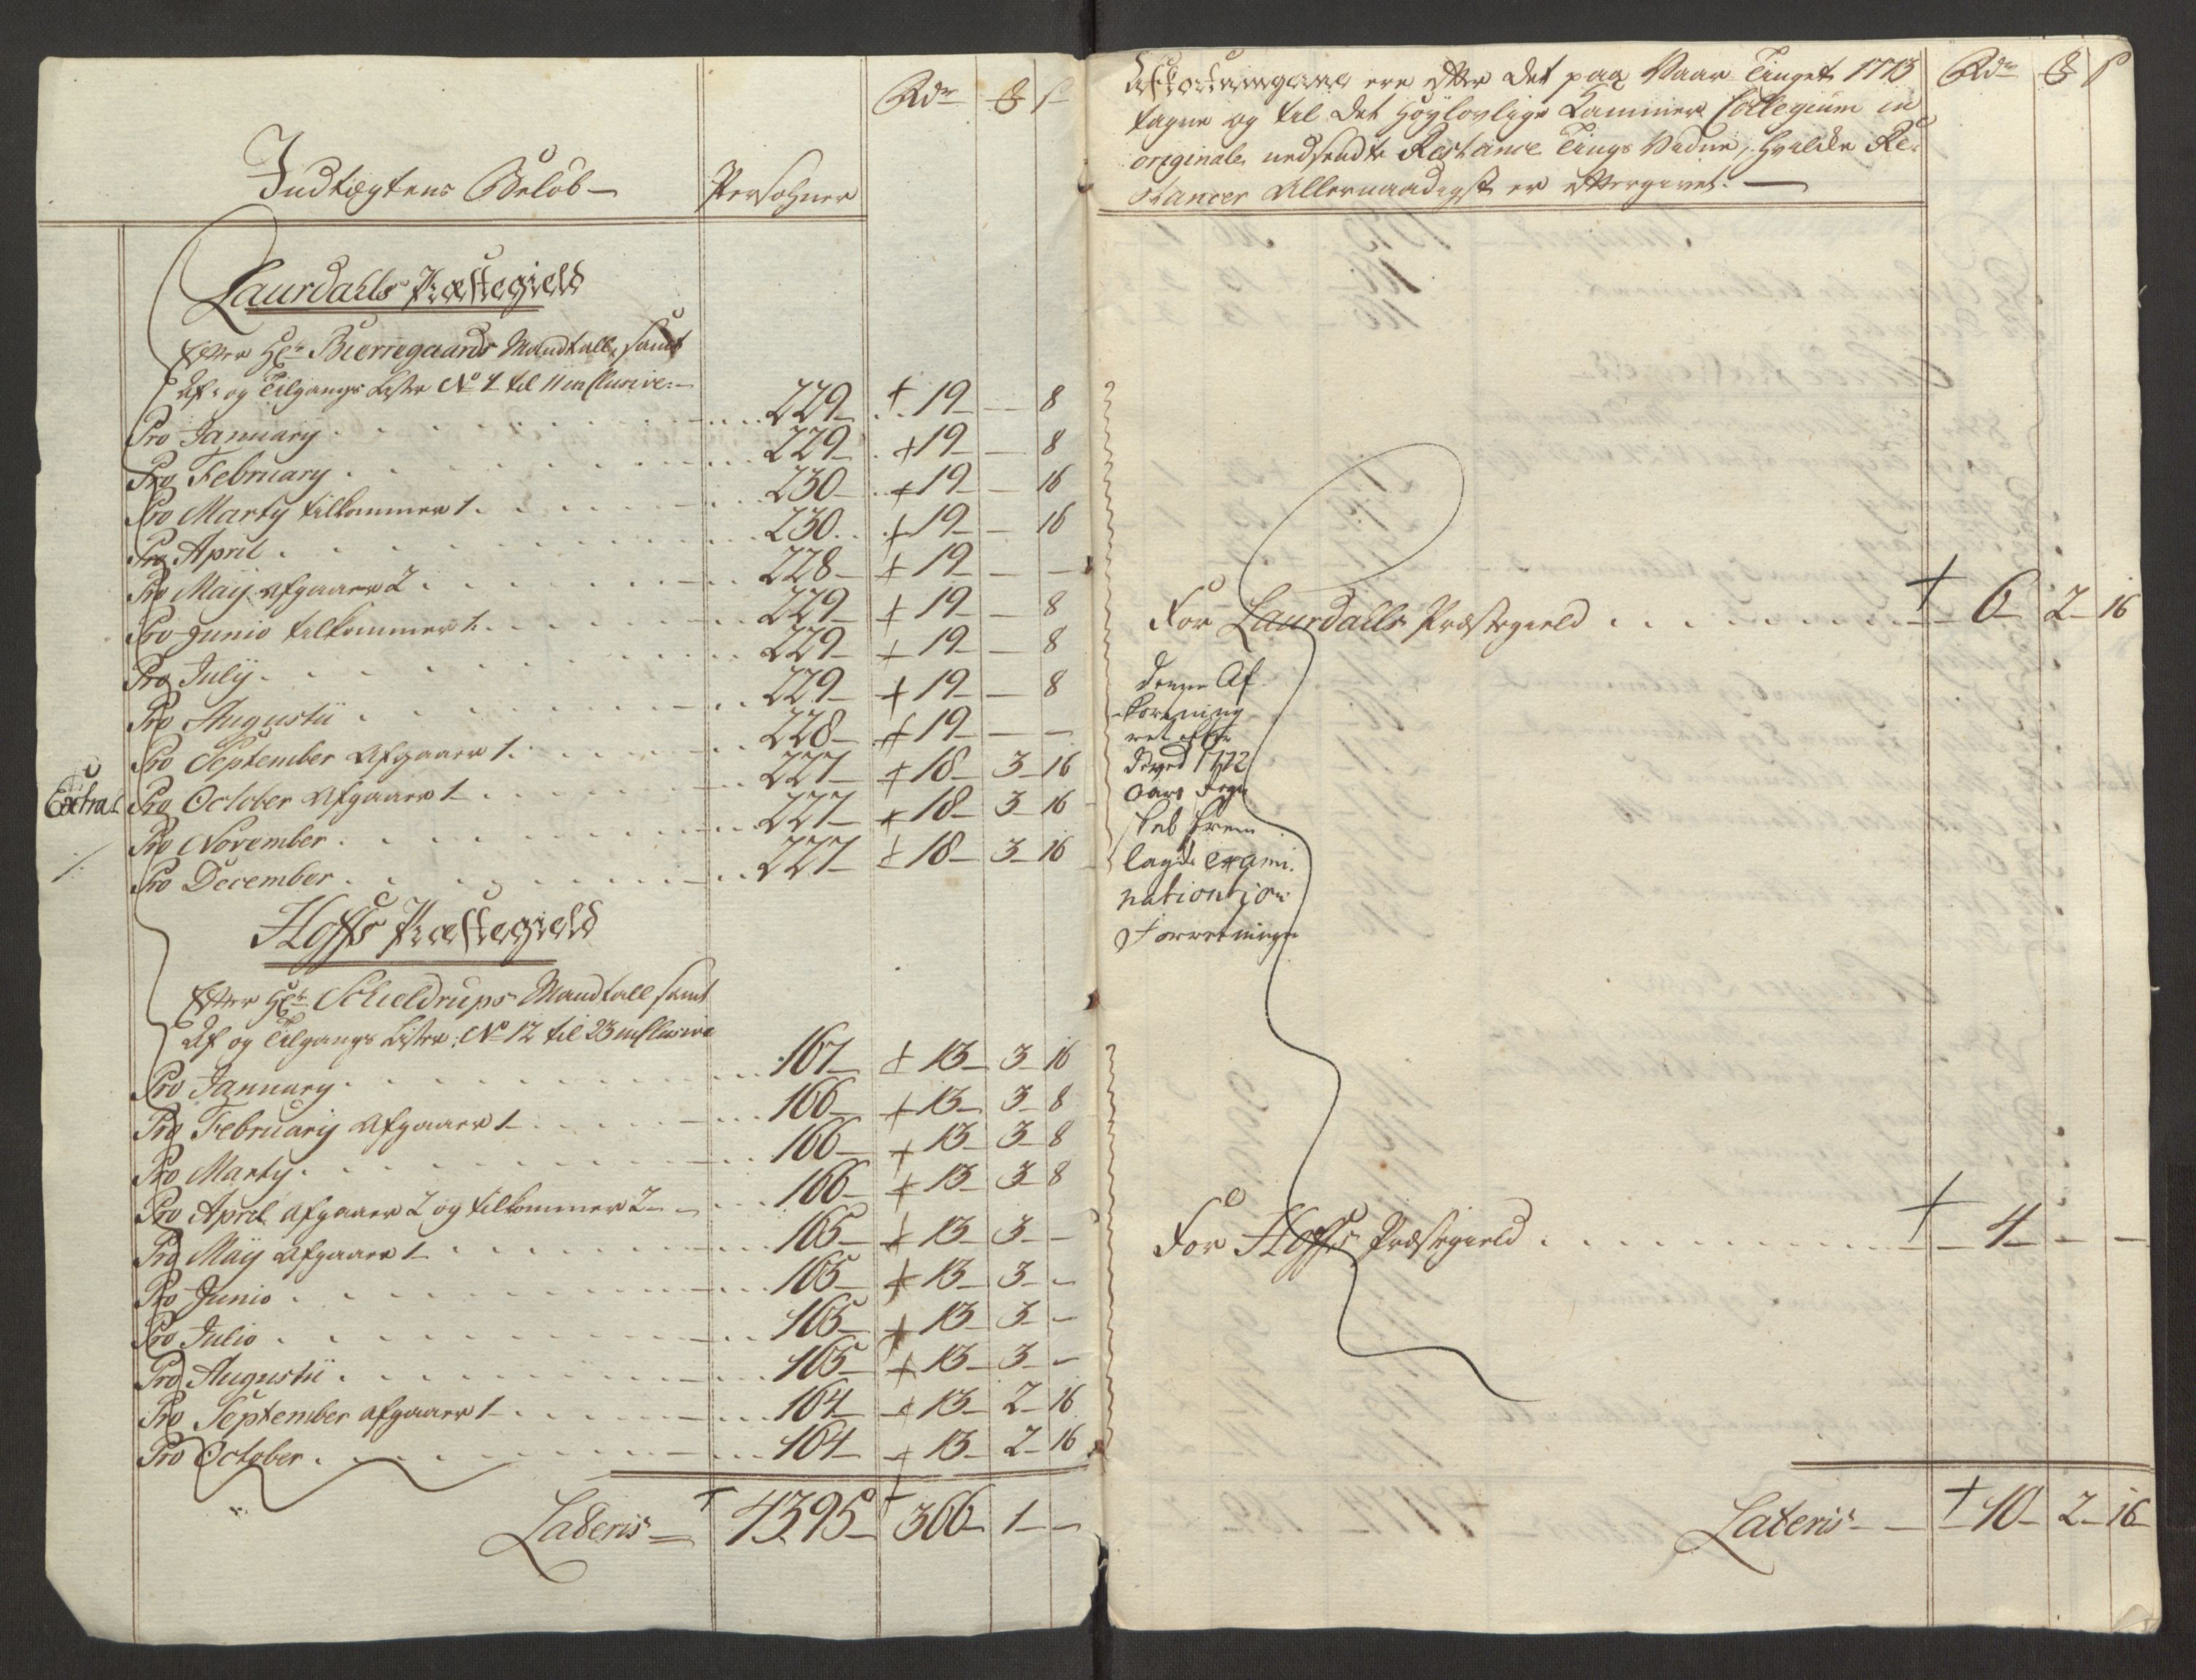 Rdr ß
Indtægtens Beløb — Persohner
Laurdahls Præstegield
Efter Hr. Bierregaards Mandtall, samt
Af- og Tilgangs Lister No 1 til 11 inclusive. —
Pro January . . . 229 — + 19 — — 8
Pro February . . . 229 — + 19 — — 8
Pro Marty tilkommer 1 . . . 230 — + 19 — — 16
Pro April . . . 230 . . + 19 — — 16
Pro Maij afgaaer 2 . . . 228 — + 19 — — —
Pro Junio tilkommer 1 . . . 229 — + 19 — — 8
Pro Julij . . . 229 — + 19 — — 8
Pro Augustii . . . 229 — + 19 — — 8
Pro September afgaaer 1 . . . 228 — + 19 — — —
Extra Pro October afgaaer 1 . . . 227 — + 18 — 3 — 16
Pro November . . . 227 — + 18 — 3 — 16
Pro December . . . 227 — + 18 — 3 — 16
Hoffs Præstegield
Efter Hr. Schieldrups Mandtall samt
Af og Tilgangs Lister No 12 til 23 inclusive
Pro January . . . 167 — + 13 — 3 — 16
Pro February afgaaer 1 . . . 166 — + 13 — 3 — 8
Pro Marty . . . 166 — + 13 — 3 — 8
Pro April afgaaer 2 og tilkommer 2 — . . . 166 — + 13 — 3 — 8
Pro Maij afgaaer 1 . . . 165 — + 13 — 3 — —
Pro Junio . . . 165 — + 13 — 3 — —
Pro Julio . . . 165 — + 13 — 3 — —
Pro Augustii . . . 165 — + 13 — 3 — —
Pro September afgaaer 1 . . . 164 — + 13 — 2 — 16
Pro October . . . 164 — + 13 — 2 — 16
Lateris = + 4395 — + 366 — 1 — —
Afkortningerne ere efter det paa Vaar Tinget 1773 Rdr ß
tagne og til det Høylovlige Kammer Collegium in
originale nedsendte Restance Tings Vidne, hvilke Re-
stancer Allernaadigst er eftergivet. —
For Laurdahls Præstegield . . . + 6 — 2 — 16
denne Af-
kortning
ved 1772
Aars Regn
skab frem
lagde exami-
nations
Forretninge
For Hoffs Præstegield . . . + — 4 — — —
Lateris — — + 10 — 2 — 16